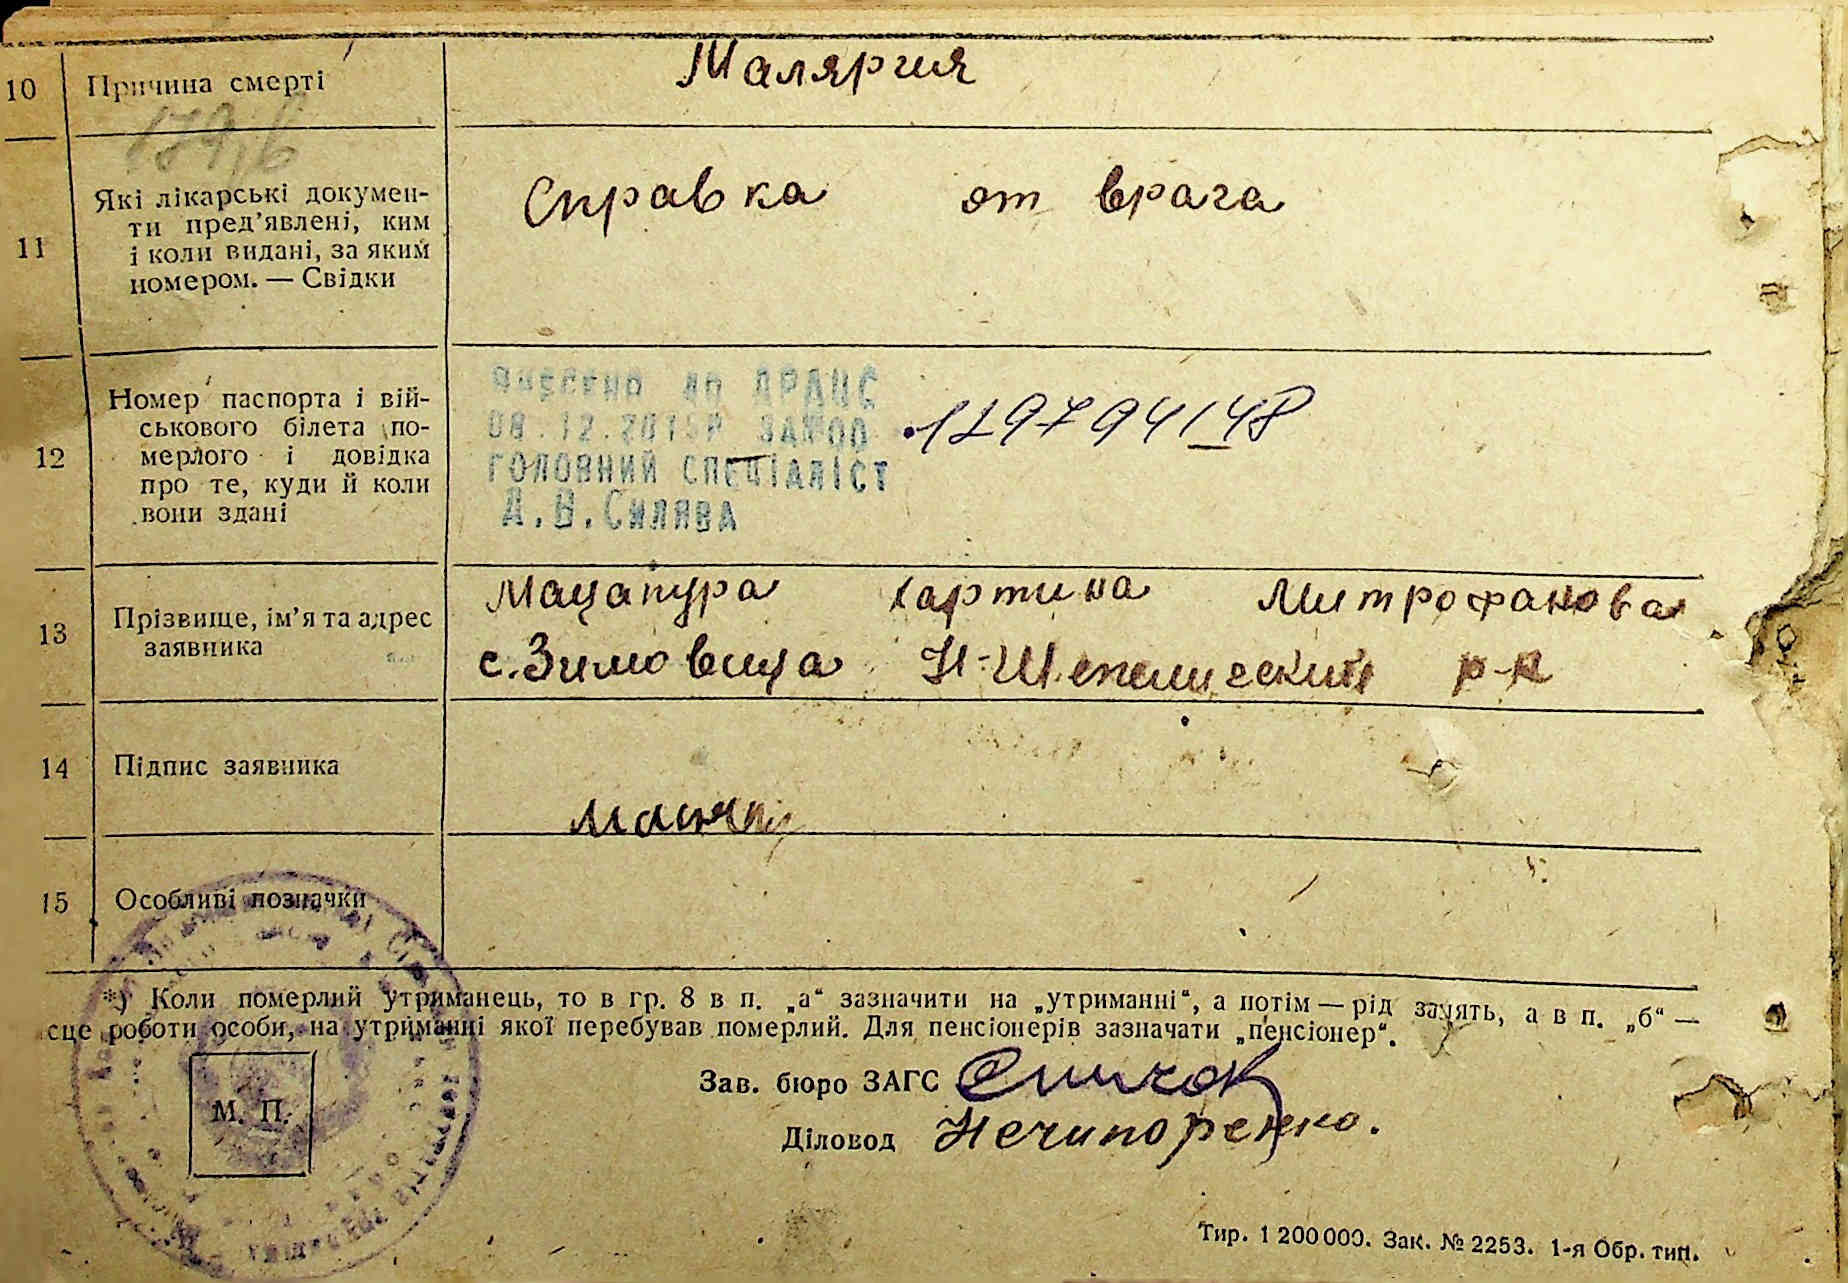 10 Причина смерти Малярия
179,б
11 Які лікарські докумен-
ти пред’явлені, ким
і коли видані, за яким
номером. — Свідки
Справка от врача
12 Номер паспорта і вій-
ськового білета по-
мерлого і довідка
про те, куди й коли
вони здані
внесено до ДРАЦС
08.12.2015р ЗАГОО
ГОЛОВНИЙ СПЕЦІАЛІСТ
А.В.Силява
179794148
13 Прізвище, ім’я та адрес
заявника
Мацапура Хартина Митрофанова
с. Зимовища Н-Шепелический р-н
14 Підпис заявника
15 Особливі позначки
*) Коли померлий утриманець, то в гр. 8 в п. „а“ зазначити на „утриманні“, а потім — рід занять, а в п. „б“ —
сце роботи особи, на утриманні якої перебував померлий. Для пенсіонерів зазначати „пенсіонер“.
Зав. бюро ЗАГС
М. П.
Діловод Нечипоренко.
Тир. 1 200 000. Зак. № 2253. 1-я Обр. тип.